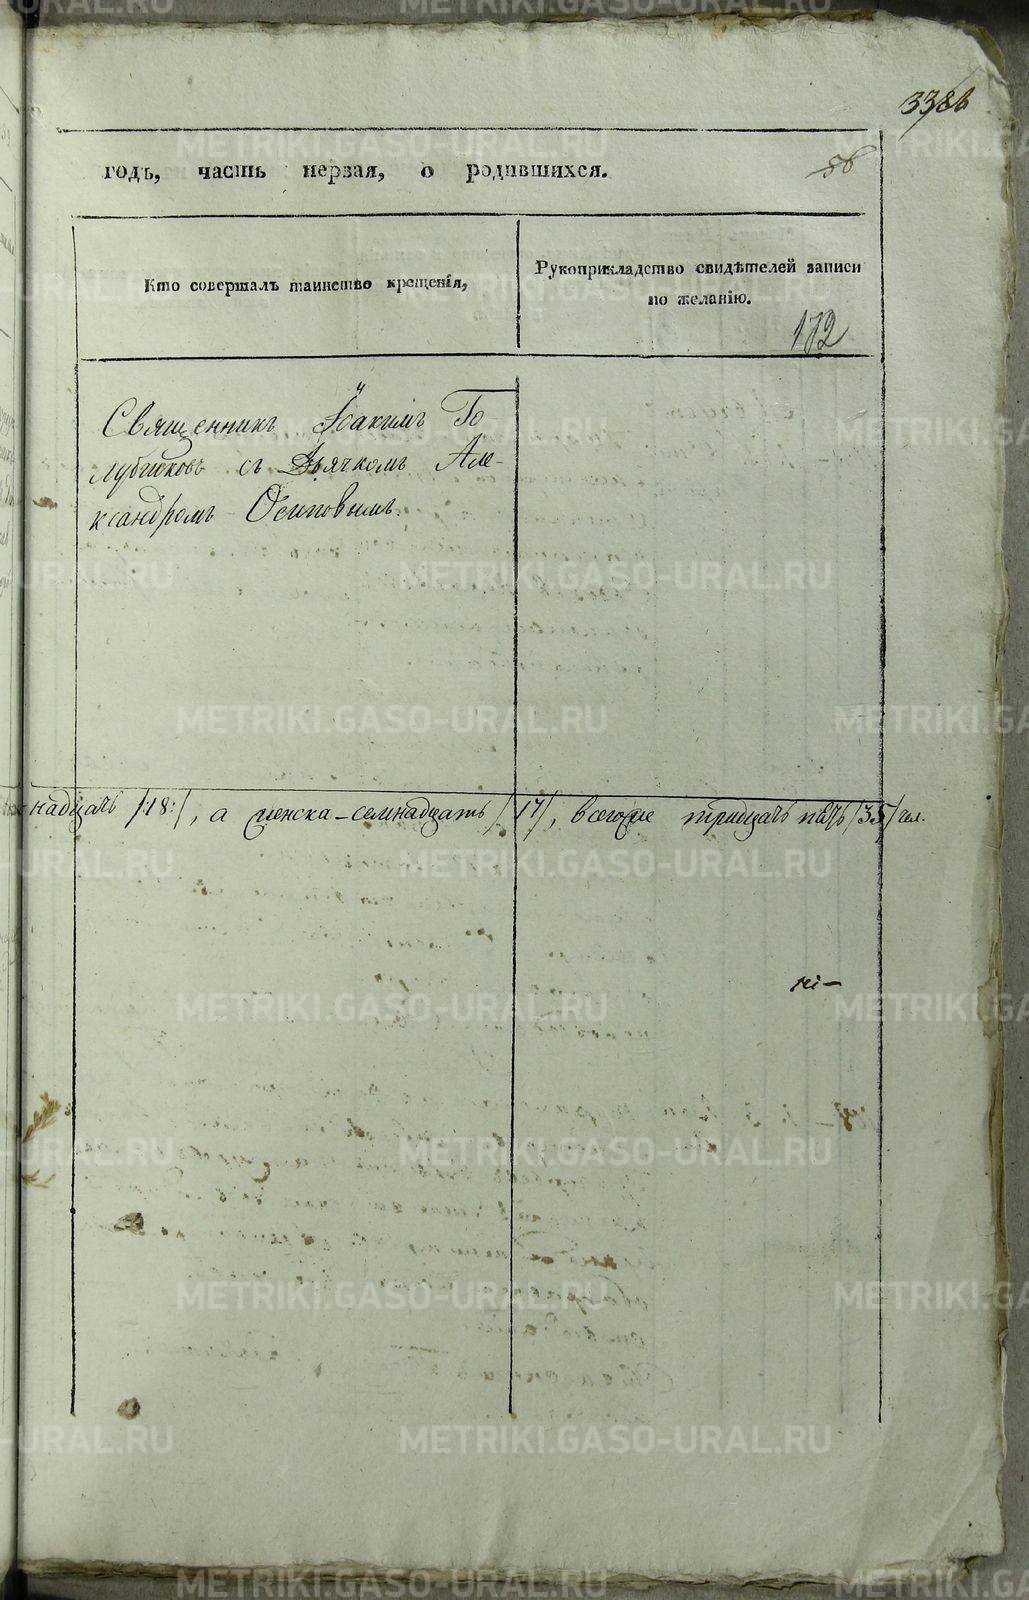 338
56
годъ, часть первая, о родившихся.
Кто совершалъ таинство крещенія,
Рукоприкладство свидѣтелей записи
по желанію.
172
Священникъ Іоакимъ Го-
лубчиковъ съ Дьячкомъ Але-
ксандромъ Осиповымъ.
надцать /:18:/, а женска-семнадцать /17/, всегоже тридцать пять /35/ чел.
METRIKI.GASO-URAL.RU